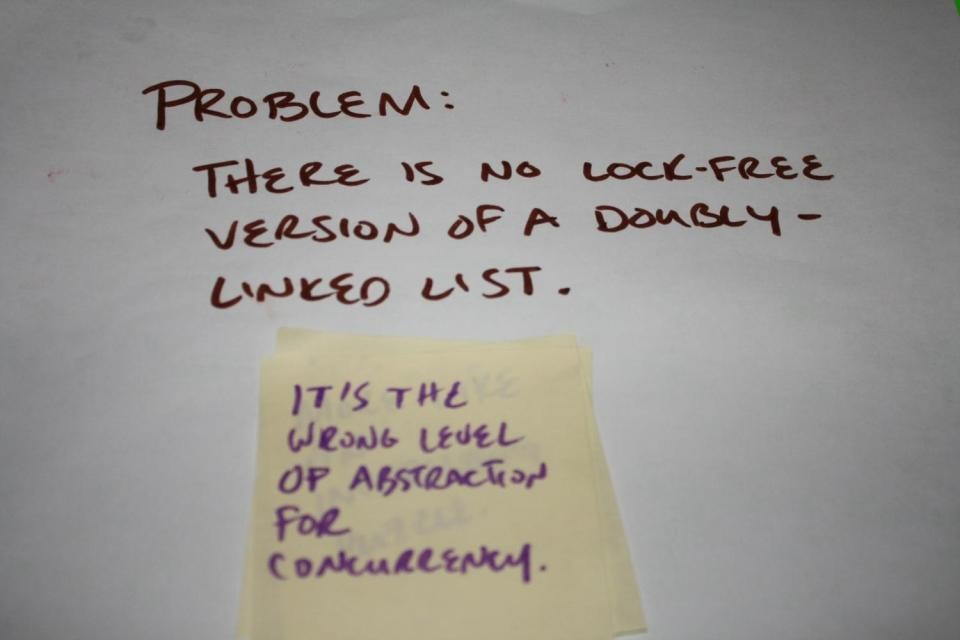 PROBLEM:
THERE IS NO LOCK-FREE
VERSION OF A DOUBLY-
LINKED LIST.
IT'S THE
WRONG LEVEL
OF ABSTRACTION
FOR
CONCURRENCY.